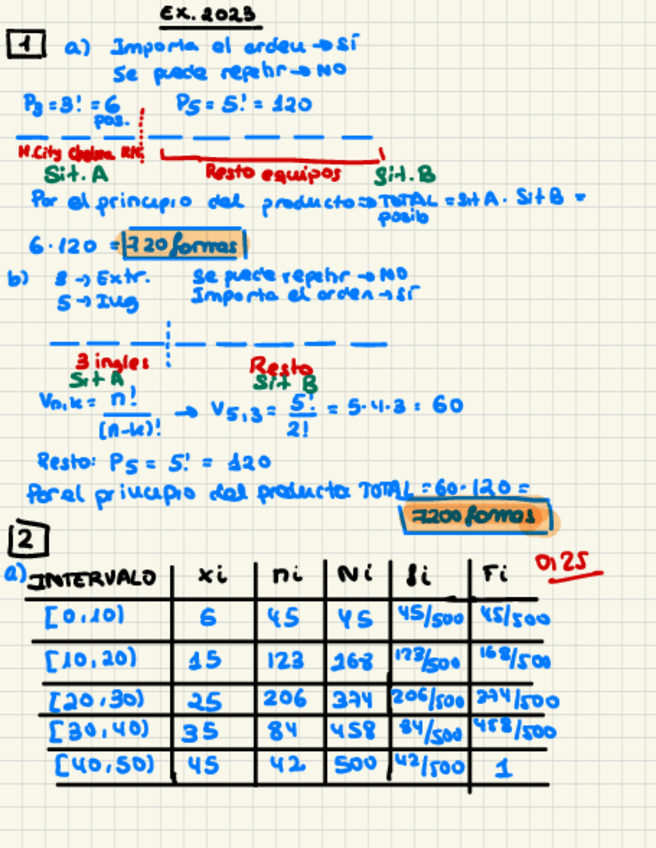 EX. 2023
1 a) Importa el orden → SÍ
Se puede repetir → NO
P3 = 3! = 6 pos. P5 = 5! = 120
M.City Chelsea R.M. Resto equipos
Sit. A Sit. B
Por el principio del producto ⇒ TOTAL posib = Sit A · Sit B =
6 · 120 = 720 formas
b) 8 → Extr. Se puede repetir → NO
5 → Ing Importa el orden → SÍ
3 ingles Resto
Sit A Sit B
Vn,k = n!/(n-k)! → V5,3 = 5!/2! = 5·4·3 = 60
Resto: P5 = 5! = 120
Por el principio del producto TOTAL = 60 · 120 =
7200 formas
2
a) INTERVALO xi ni Ni fi Fi 0,25
[0,10) 6 45 45 45/500 45/500
[10,20) 15 123 168 123/500 168/500
[20,30) 25 206 374 206/500 374/500
[30,40) 35 84 458 84/500 458/500
[40,50) 45 42 500 42/500 1